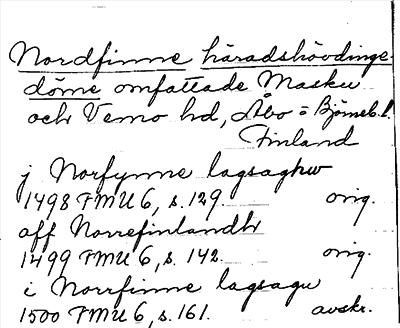 Nordfinne häradshövdinge-
döme omfattade Masku
och Vemo hd, Åbo = Björneb. l.
Finland
j Norfynne lagsaghw
1498 FMU 6, s. 129. orig.
aff Norrefinlandh
1499 FMU 6, s. 142. orig.
i Norrfinne lagsagu
1500 FMU 6, s. 161. avskr.